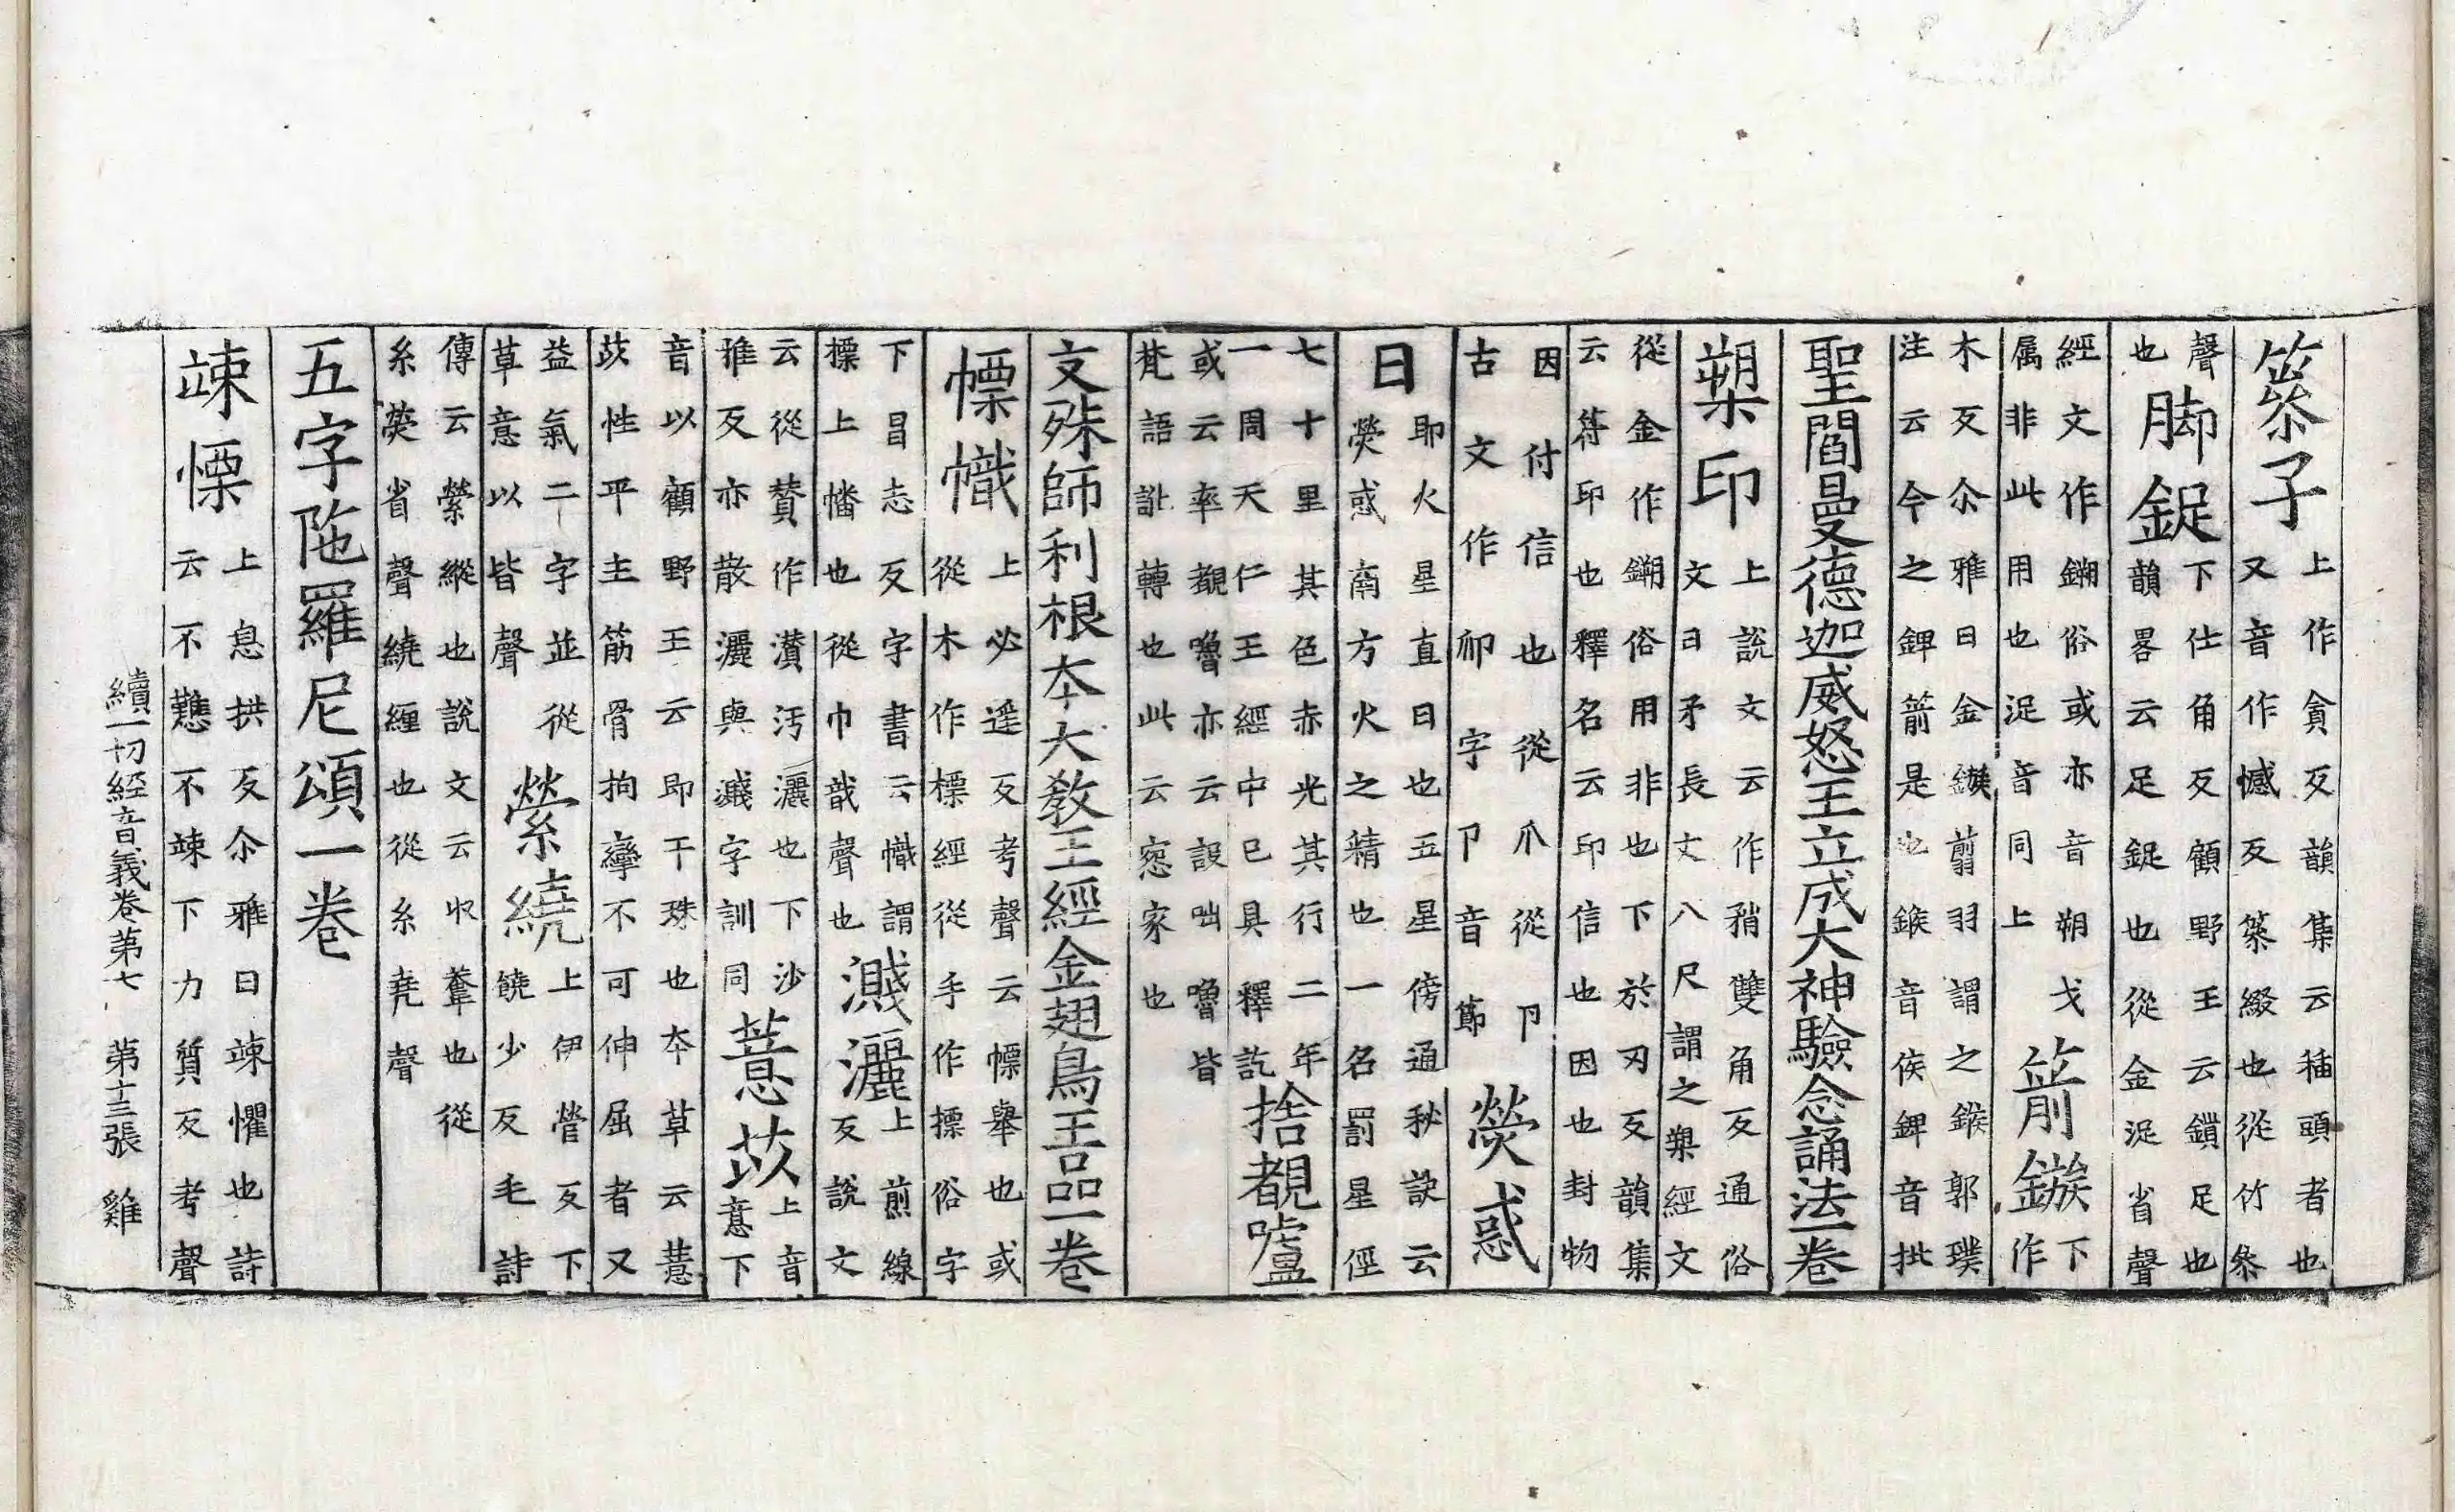 篸子上作貪反韻集云䅰頭者也又音作憾反篸綴也從竹叅
聲也脚鋜下仕角反顧野王云鏁足也韻畧云足鋜也從金浞省聲
經文作鎙俗或亦音朔戈属非此用也浞音同上箭鏃下作
木反尒雅曰金鏃翦羽謂之鍭郭璞注云今之錍箭是也鍭音侯錍音批
聖閻曼德迦威怒王立成大神驗念誦法一卷
槊印上說文云作矟雙角反通俗文曰矛長丈八尺謂之槊經文
從金作鎙俗用非也下於刃反韻集云符印也釋名云印信也因也封物
因付信也從爪從卩古文作𠨍字卩音節熒惑
日即火星直日也五星傍通秘訣云熒惑南方火之精也一名罰星徑
七十里其色赤光其行二年一周天仁王經中已具釋訖捨覩嚧
或云率覩嚕亦云設咄嚕皆梵語訛轉也此云寃家也
文殊師利根夲大教王經金翅鳥王品一卷
幖幟上必遥反考聲云幖舉也或從木作標經從手作摽俗字
下昌志反字書云幟謂摽上幡也從巾戠聲也濺灑上煎線反說文
云從贊作灒汚灑也下沙雅反亦散灑與濺字訓同薏苡上音意下
音以顧野王云即干珠也夲草云薏苡性平主筋骨拘攣不可伸屈者又
益氣二字並從草意以皆聲縈繞上伊營反下饒少反毛詩
傳云縈縱也說文云收䡞也從糸𤇾省聲繞纒也從糸堯聲
五字陁羅尼頌一卷
竦慄上息拱反尒雅曰竦懼也詩云不戁不竦下力質反考聲
續一切經音義卷第七 第十三張 雞